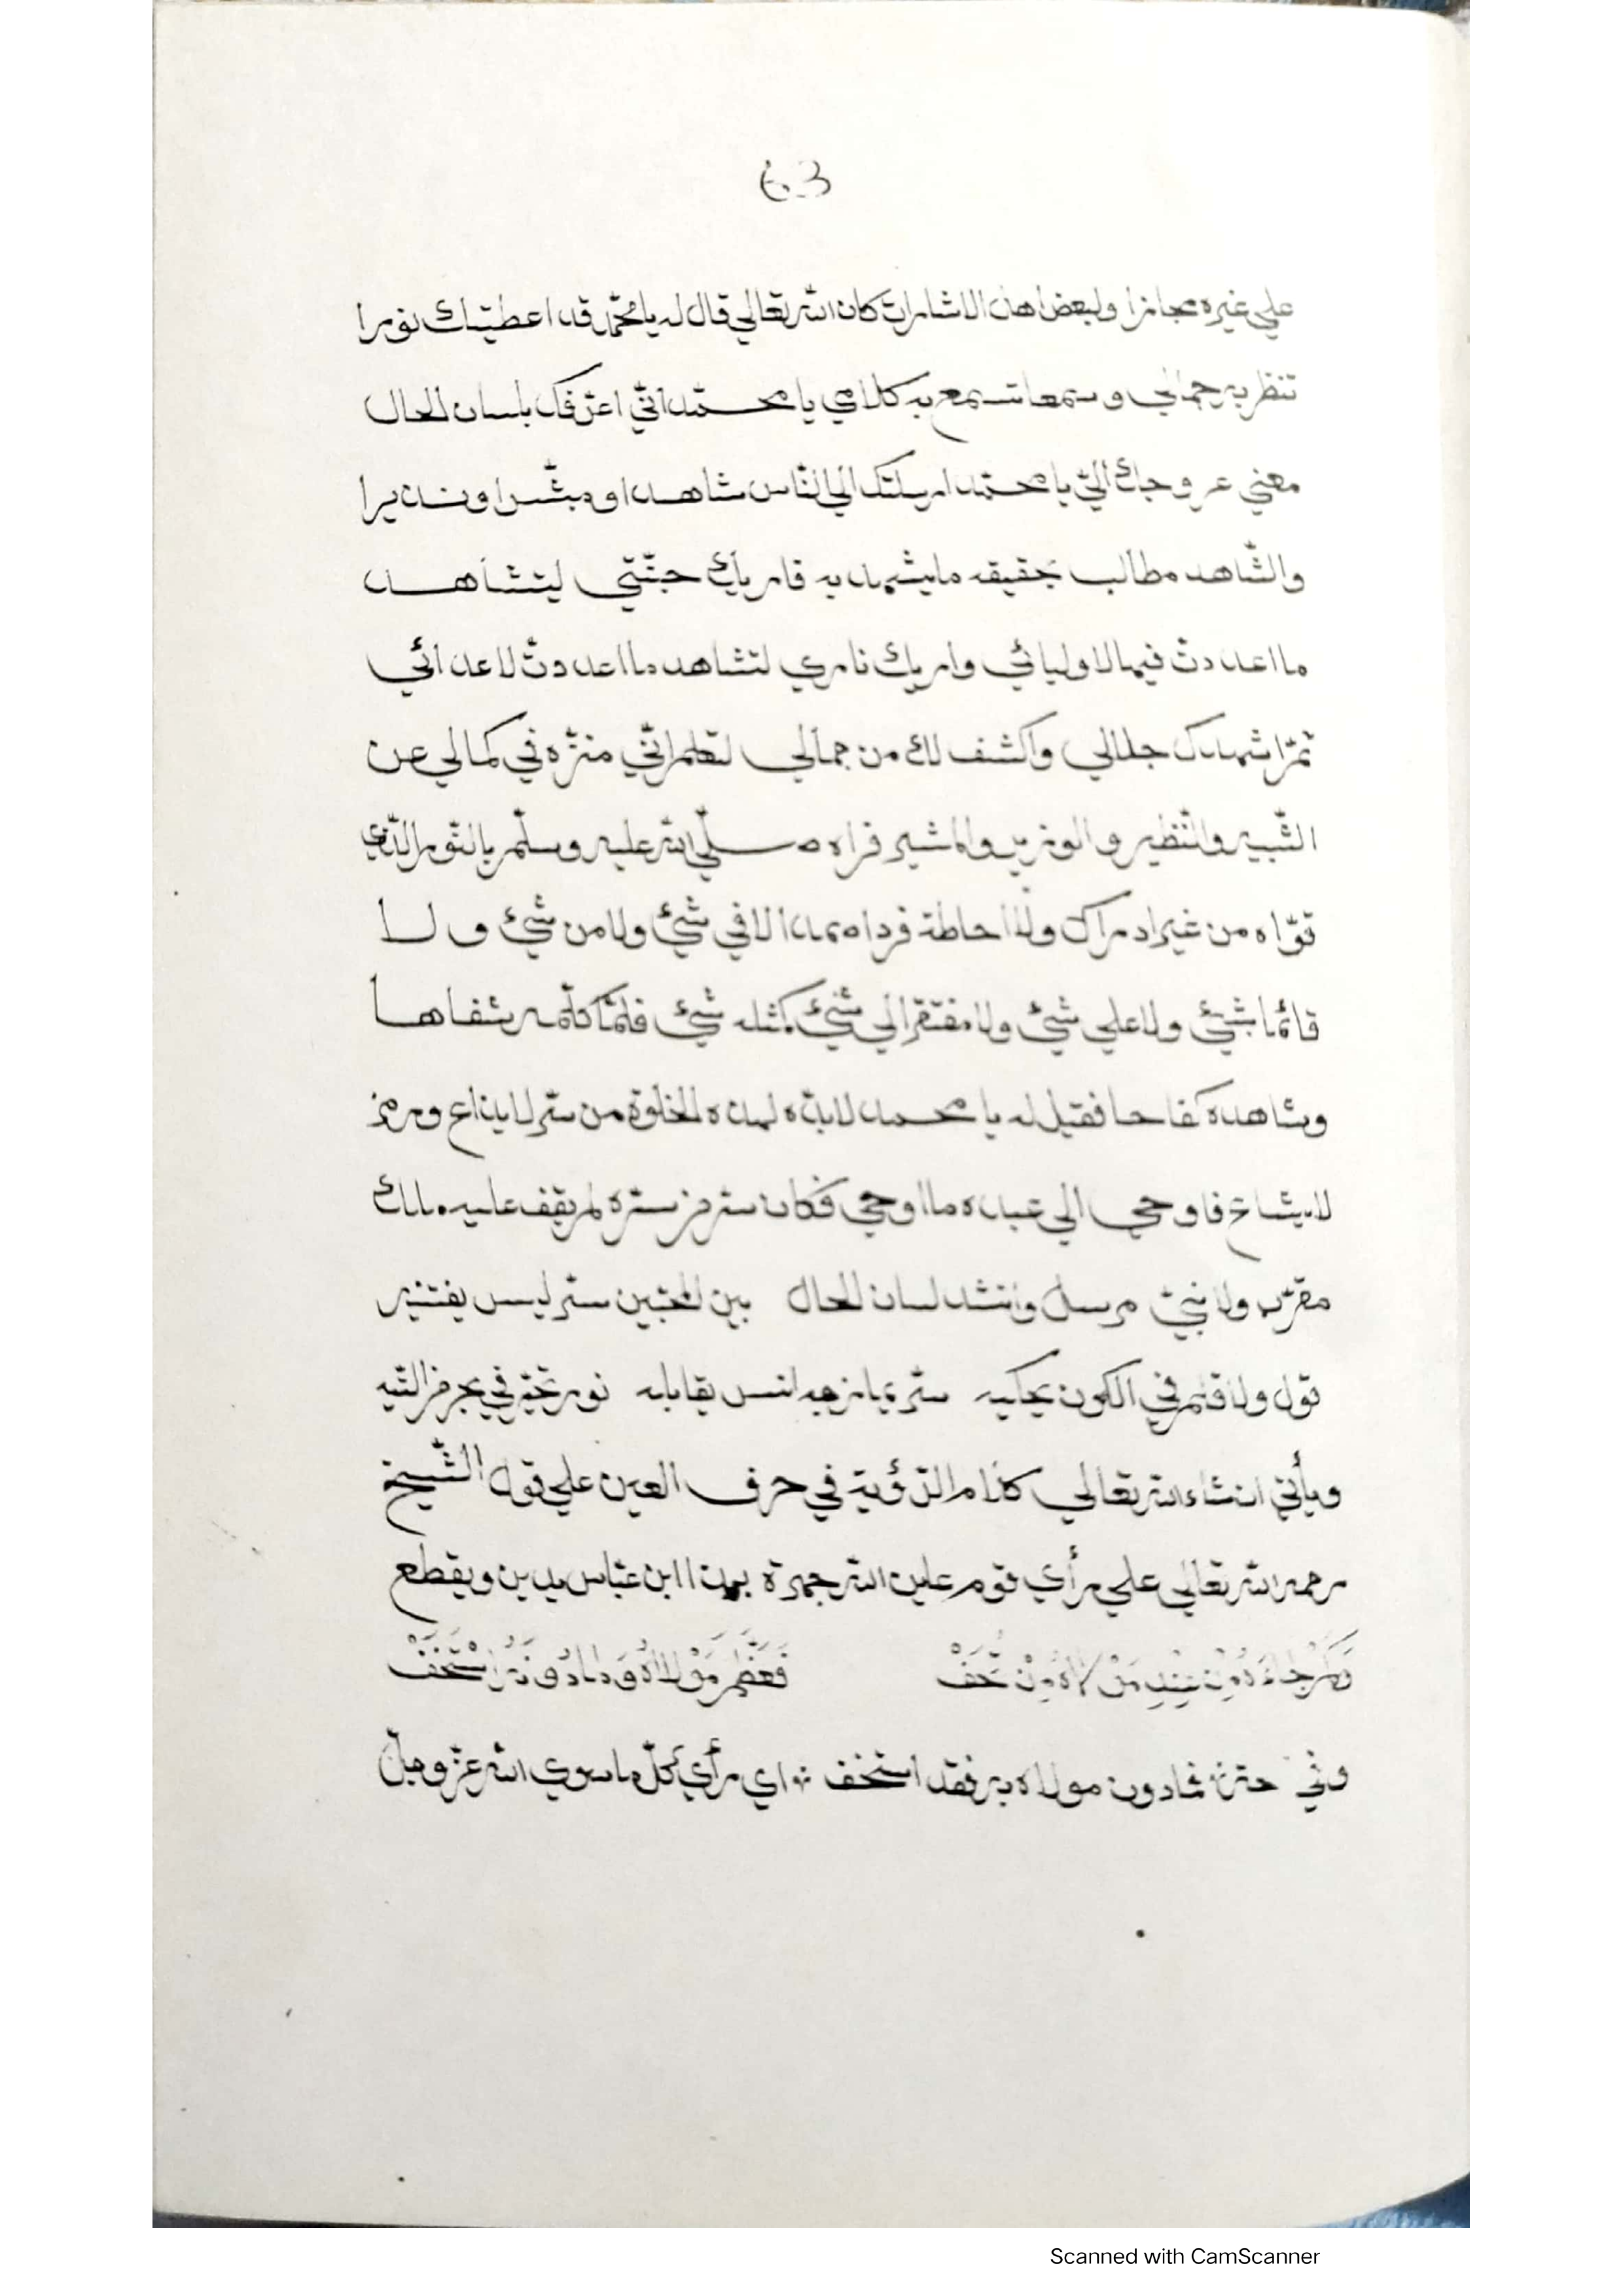 63
علي غيره مجازا ولبعض اهل الاشارات كان الله تعالي قال له يا محمّد قد اعطيتك نورا
تنظر به جمالي وسمعا تسمع به كلامي يا محمّد انّي اعرّفك بلسان الحال
معني عروجك اليّ يا محمّد ارسلتك الي النّاس شاهدا ومبشّرا ونذيرا
والشّاهد مطالب بحقيقه مايشهد به فاريك جنّتي ليتشاهد
ما اعددتّ فيها لاوليائي واريك ناري لتشاهد ما اعددتّ لاعدائي
ثمّ اشهدك جلالي واكشف لك من جمالي لتعلم انّي منزّه في كمالي عن
الشّبيه والنّظير والوزير والمشير فراه صلّي الله عليه وسلّم بالنّور الّذي
قوّاه من غير ادراك ولا احاطة فردا صمدا لا في شئ ولا من شئ ولا
قائما بشئ ولا علي شئ ولا مفتقرا الي شئ كمثله شئ فلمّا كلّمه شفاها
وشاهده كفاحا فقيل له يا محمد لابدّ لهذه الخلوة من سرّ لا يذاع ورمز
لايشاع فاوحي الي عبده ما اوحي فكان سرّ من سرّه لم يقف عليه ملك
مقرّب ولا نبيّ مرسل وانشد لسان الحال بين المحبّين سرّ ليس يفشيه
قول ولا قلم في الكون يحكيه سرّ يمازجه انس يقابله نور تحيّر في بحر من التّيه
ويأتي ان شاء الله تعالي كلام الرّؤية في حرف العين علي قول الشّيخ
رحمه الله تعالي علي رأي قوم عاين الله جهرة بهذا ابن عبّاس يدين ويقطع
فَعَظَّمَ مَوْلَاهُ وَمَا دُونَهُ اسْتَخَفْ
دون مولاه به فقد استخف اي رأي كلّ ما سوي الله عزّ وجلّ